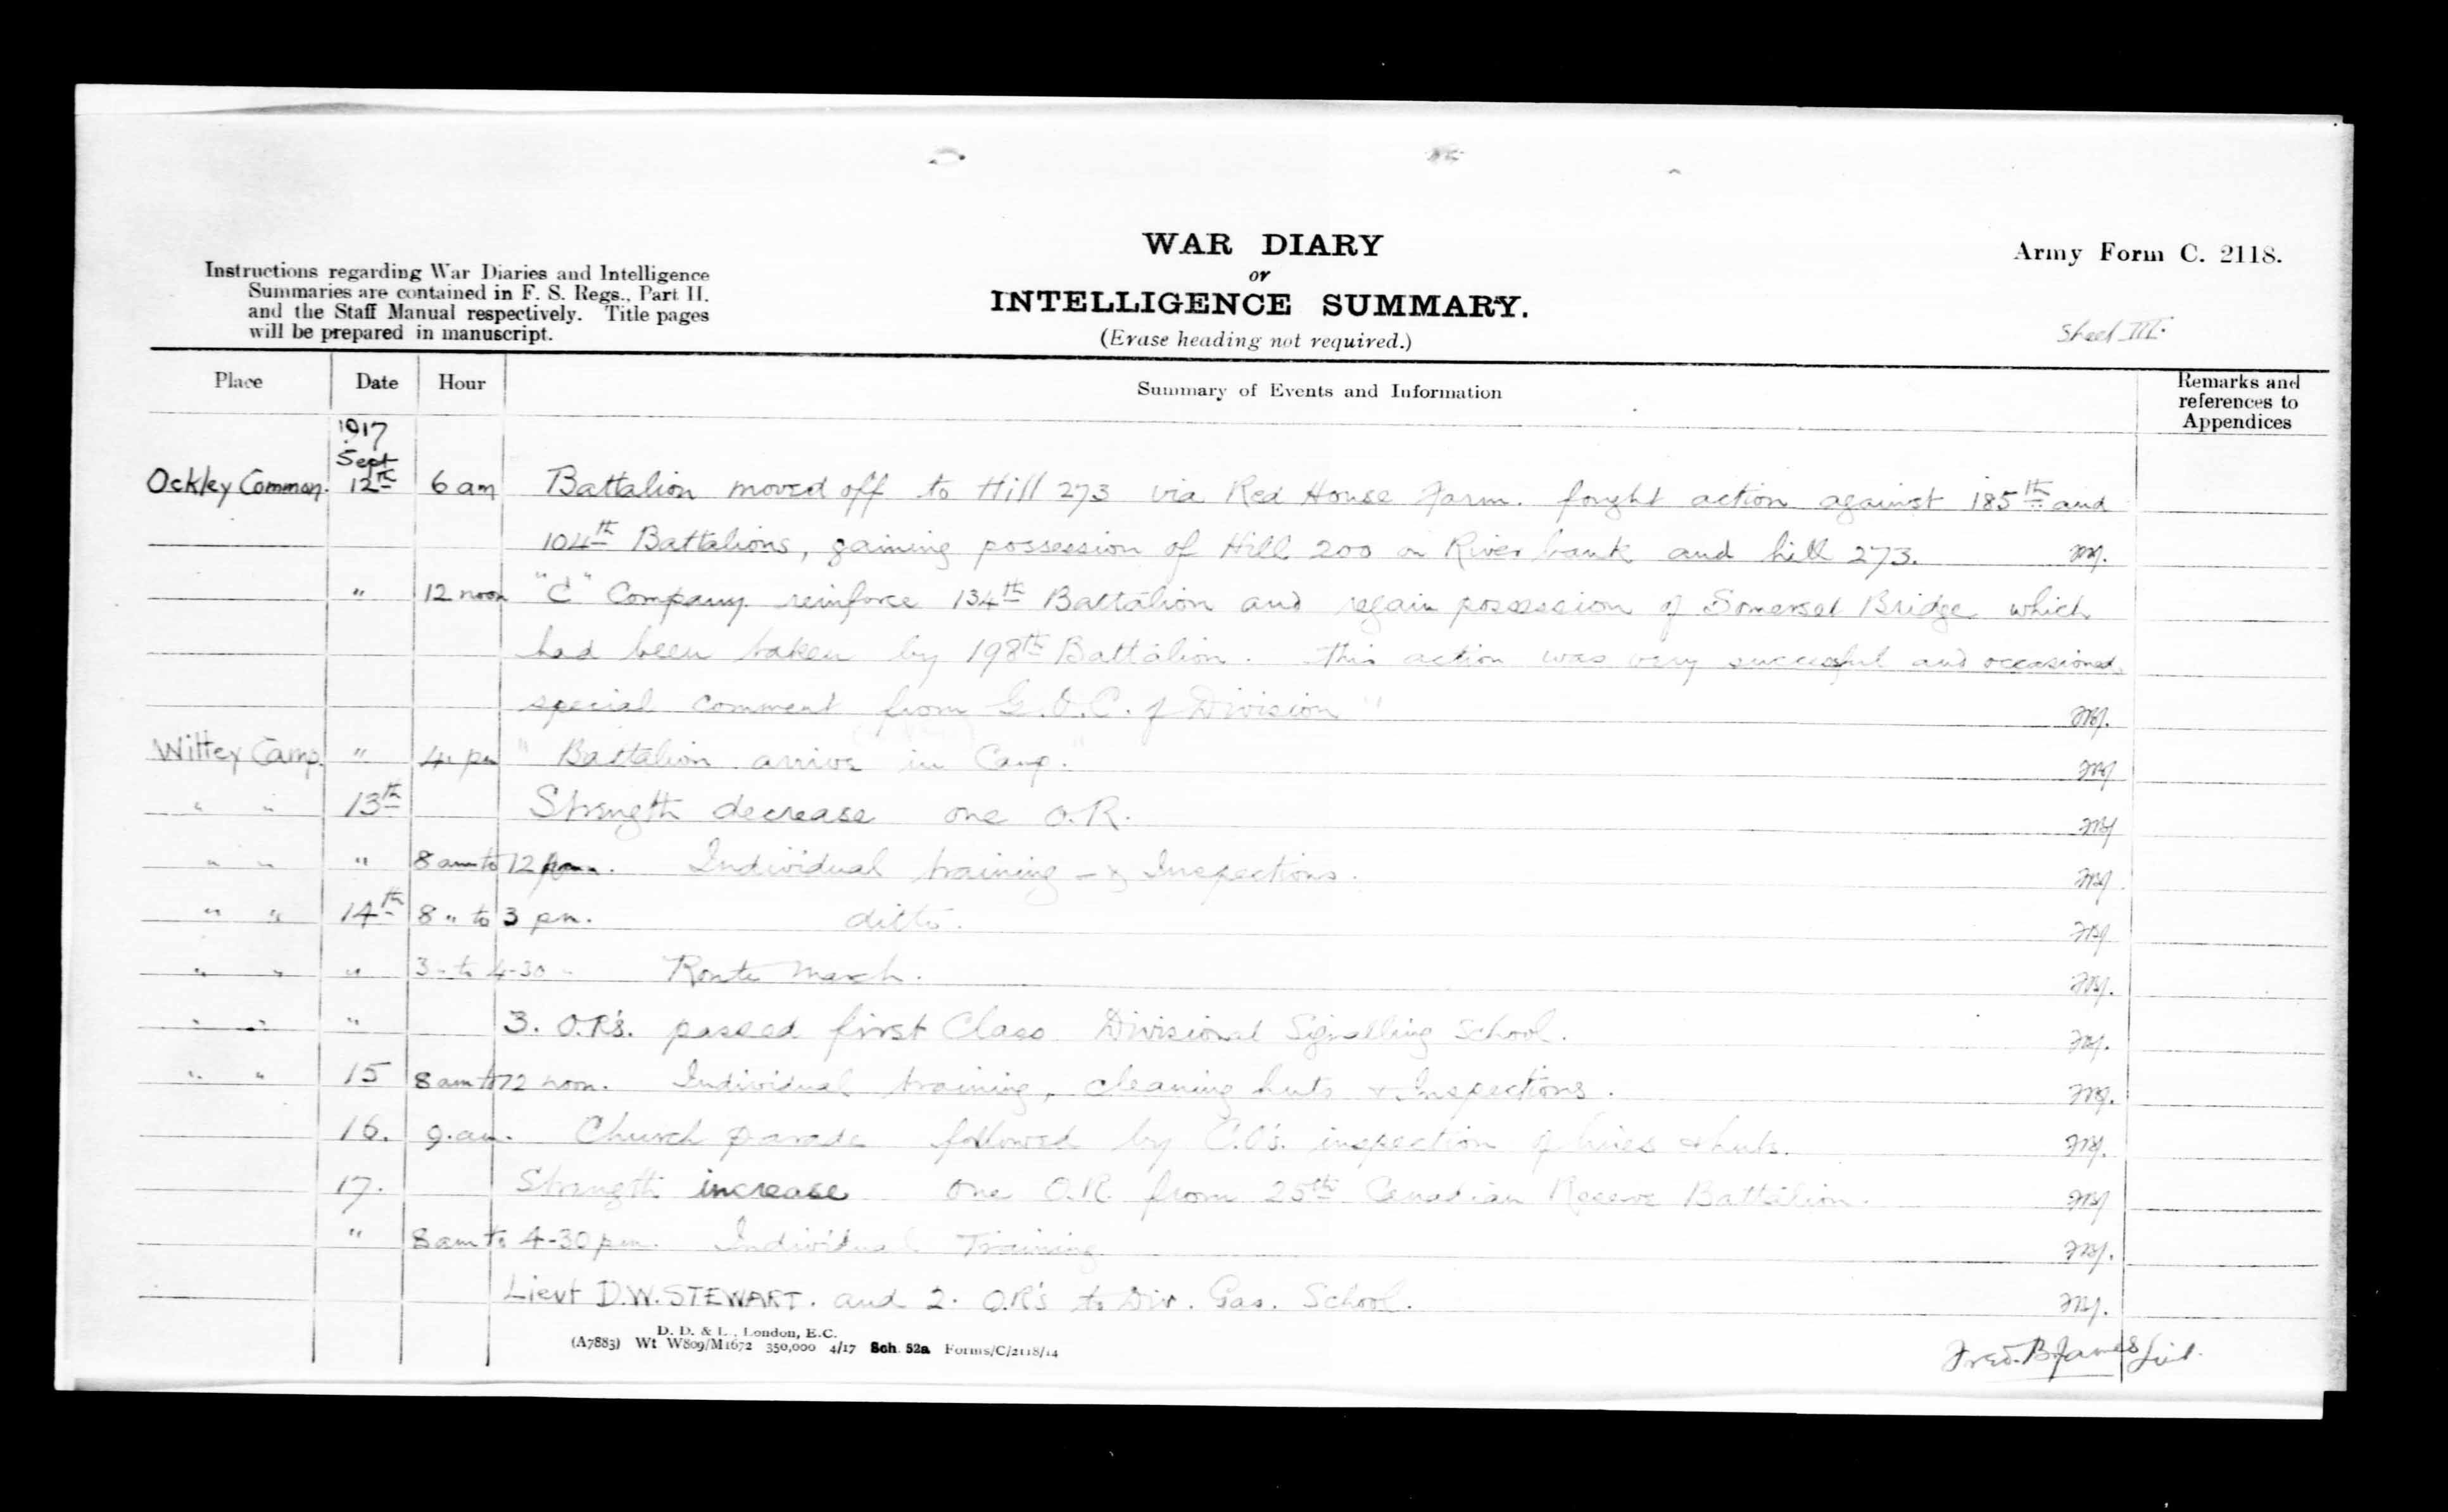 WAR DIARY
or
INTELLIGENCE SUMMARY.
(Erase heading not required.)
Army Form C. 2118.
Instructions regarding War Diaries and Intelligence
Summaries are contained in F. S. Regs., Part II.
and the Staff Manual respectively. Title pages
will be prepared in manuscript.
Sheet III.
Place Date Hour Summary of Events and Information Remarks and
references to
Appendices
1917
Sept
Ockley Common. 12th 6 am Battalion moved off to Hill 273 via Red House Farm. fought action against 185th and
104th Battalions, gaining possession of Hill 200 on River bank and hill 273.
" 12 noon "C" Company reinforce 134th Battalion and regain possession of Somerset Bridge which
had been taken by 198th Battalion. This action was very successful and occasioned
special comment from G.O.C. of Division"
Witley Camp. " 4 pm " Battalion arrive in Camp."
" " 13th Strength decrease one O.R.
" " " 8 am to 12 Individual training - & Inspections.
" " 14th 8 " to 3 pm. ditto.
" " " 3 " to 4-30 " Route March.
" " " 3. O.R's. passed first Class Divisional Signalling School.
" " 15 8 am to 12 noon. Individual training, cleaning huts & Inspections.
16. 9. am. Church parade followed by C.O's. inspection of lines & huts.
17. Strength increase one O.R. from 25th Canadian Reserve Battalion.
" 8 am to 4-30 pm. Individual Training
Lieut D.W. STEWART. and 2. O.R's to Div. Gas. School.
Fred. B James Lieut.
D. D. & L., London, E.C.
(A7883) Wt W809/M1672 350,000 4/17 Sch. 52a Forms/C/2118/14